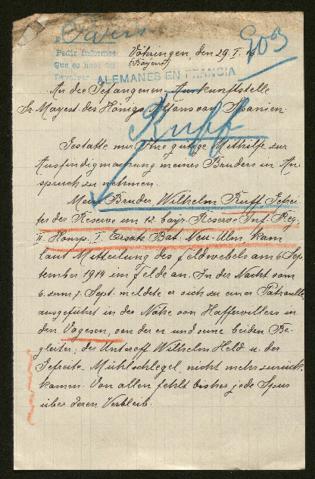 Paris
903
Vöhringen, den 29. I. 16
(Bayern)
Pedir Informes
Que es hace de
Devolver
ALEMANES EN FRANCIA
An die Gefangenen-Auskunftstelle
Sr. Mayest. des Königs Alfons von Spanien.
Ruff
Gestatte mir Ihre gütige Mithilfe zur
Ausfindigmachung meines Bruders in An-
spruch zu nehmen.
Mein Bruder Wilhelm Ruff, Gefrei-
ter der Reserve im 12. bayr. Reserve-Inf. Reg.
II. Komp. I. Ersatz Bat. Neu-Ulm, kam
laut Mitteilung des Feldwebels am 6. Sep-
tember 1914 im Felde an. In der Nacht vom
6. zum 7. Sept. meldete er sich zu einer Patrouille
ausgeführt in der Nähe von Haffeewillers in
den Vogesen, von der er und seine beiden Be-
gleiter, der Untroff Wilhelm Held u. der
Gefreite Mühlschlegel, nicht mehr zurück-
kamen. Von allen fehlt bisher jede Spur
über deren Verbleib.